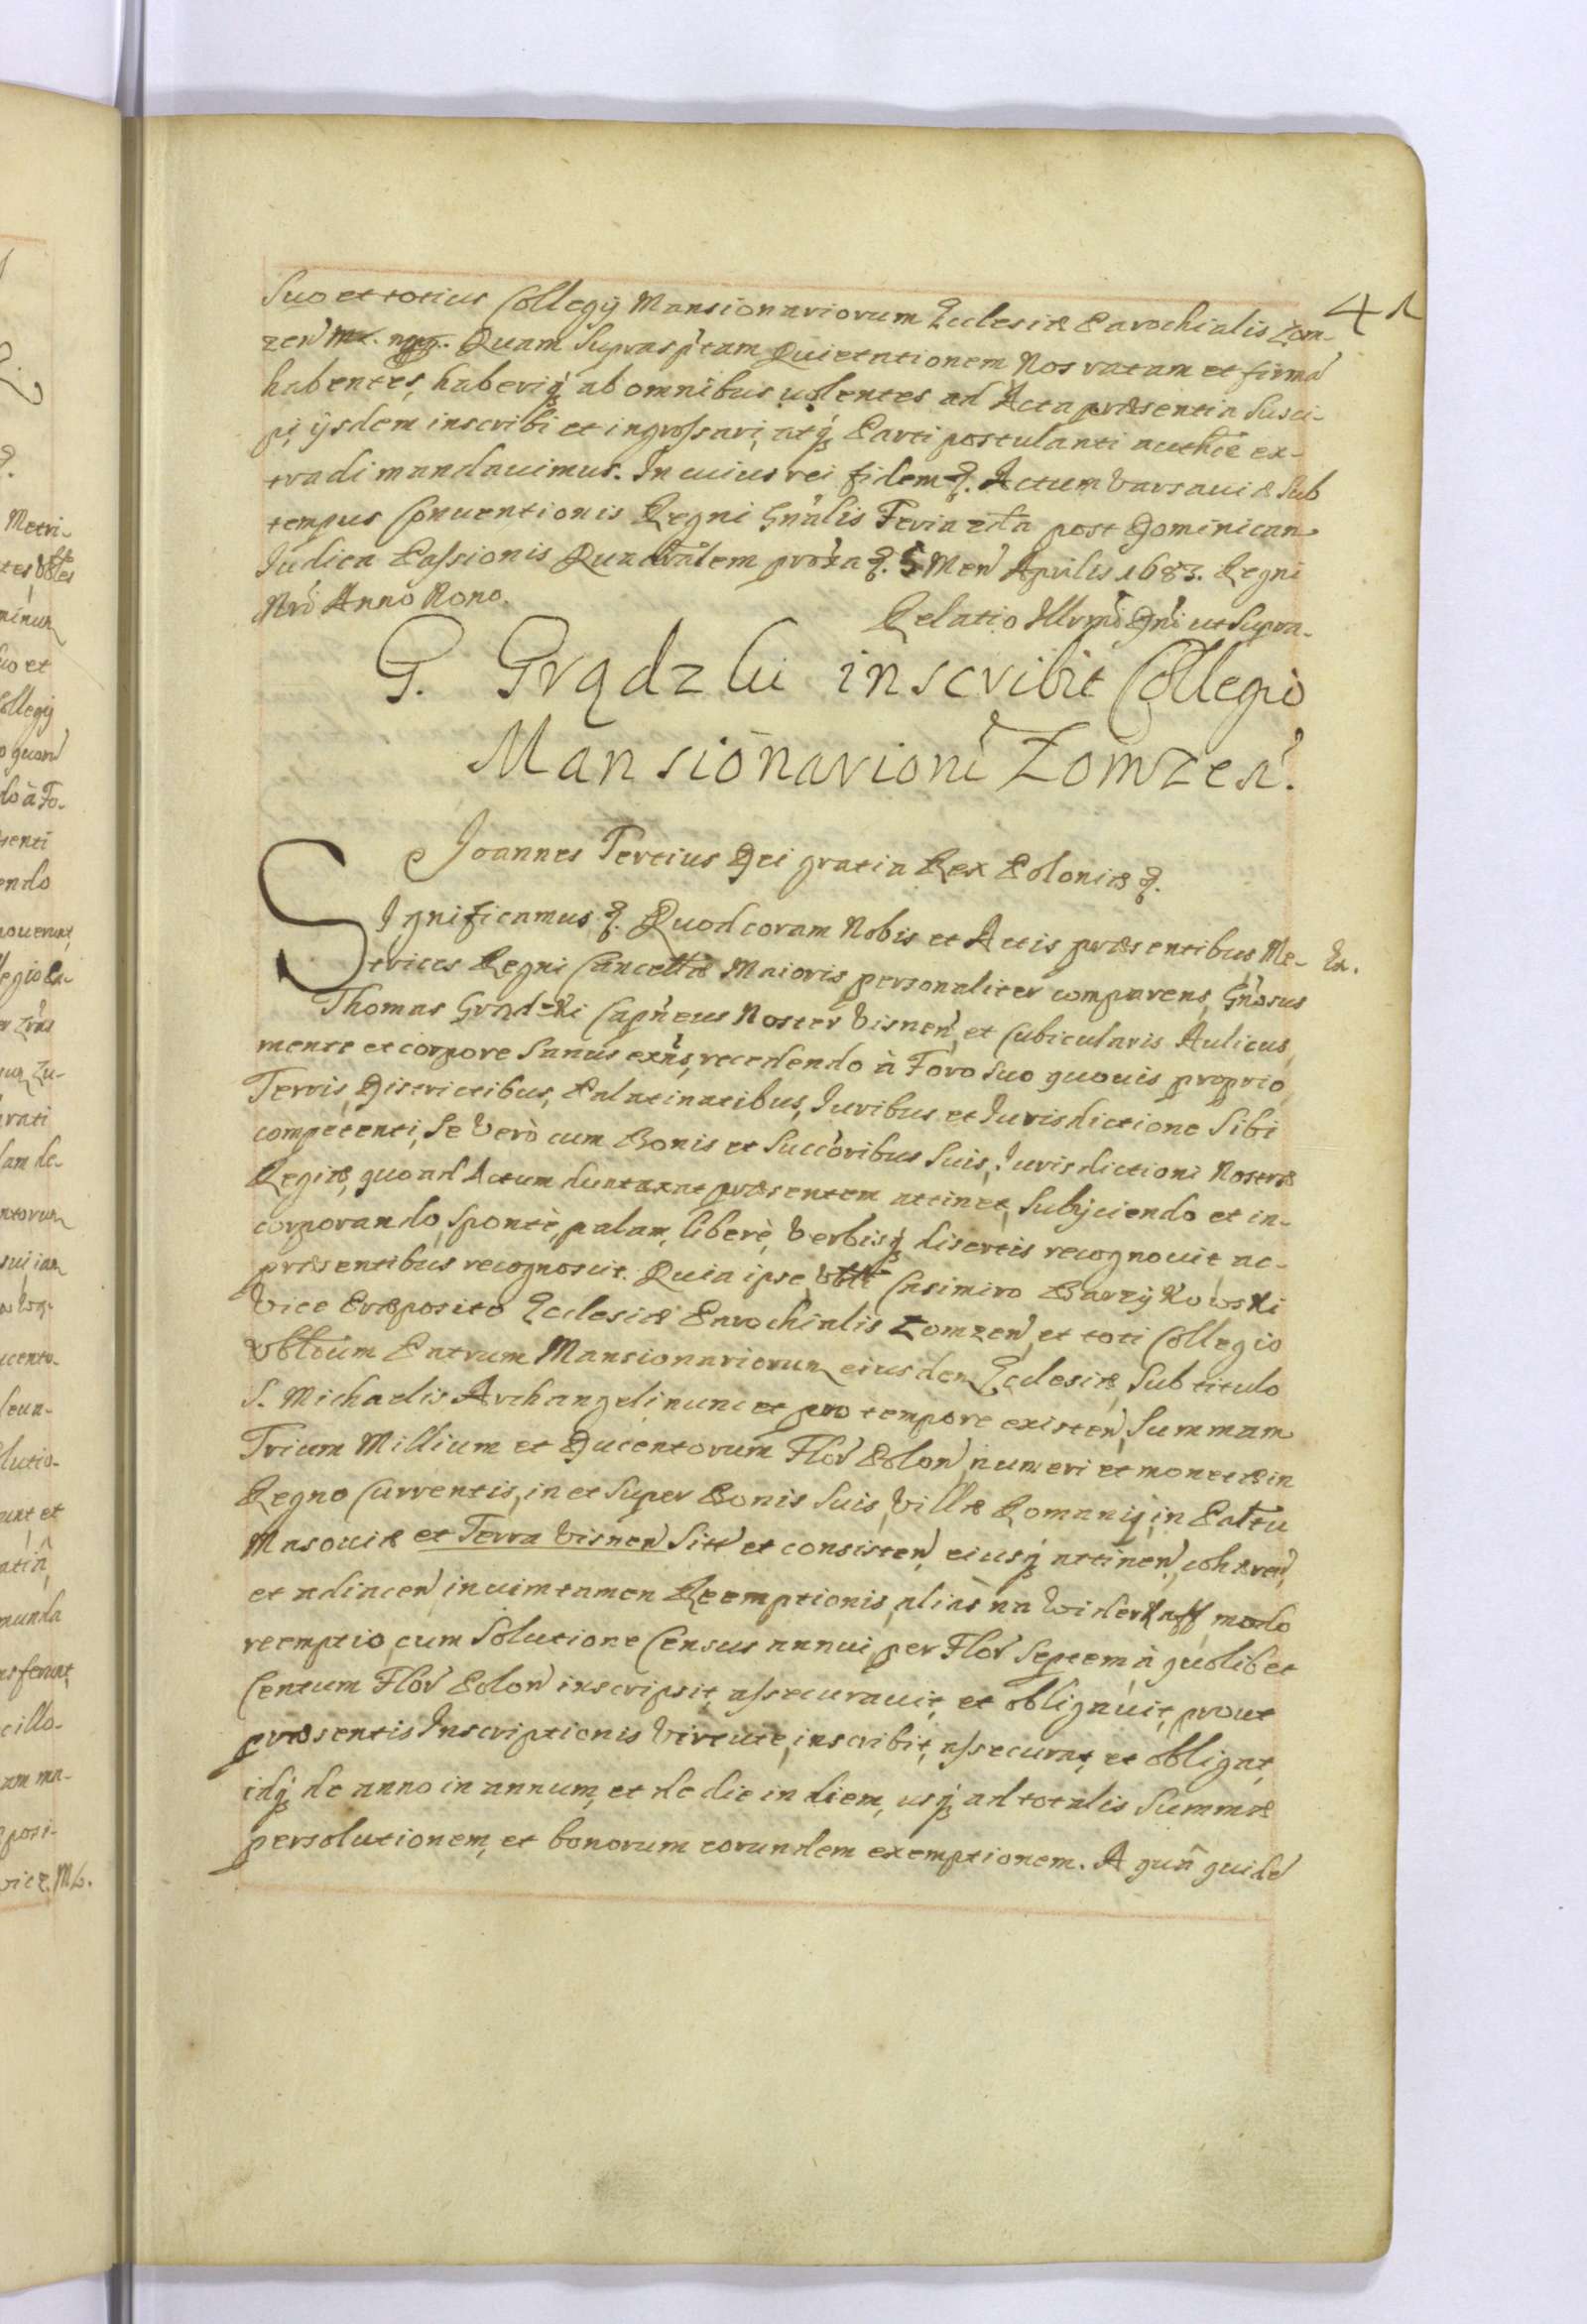 41
Suo et totius Collegÿ Mansionariorum Ecclesiæ Parochialis Łom-
zeñ mx. nqq. Quam Suprasptam Quietationem Nos ratam et firmã
habentes, haberiq́ ab omnibus uolentes ad Acta præsentia Susci-
pi, ijsdem inscribi et ingrossari, atq́ Parti postulanti authce ex-
tradi mandauimus. In cuius rei fidem &. Actum Varsauiæ Sub
tempus Conuentionis Regni Gnalis Feria 2da post Dominicam
Iudica Passionis Quadralem prox̃a &. 5 Meñ Aprilis 1683. Regni
Nrĩ Anno Nono.
Relatio Illrmĩ Dnĩ ut Supra.
G. Grądzki inscribit Collegio
Mansionarioni Łomzeñ.
Joannes Tertius Dei gratia Rex Poloniæ &.
Significamus &. Quod coram Nobis et Actis præsentibus Me- Ex.
trices Regni Cancellæ Maioris personaliter comparens, Gnosus
Thomas Grądzki Capneus Noster Visneñ, et Cubicularis Aulicus,
mente et corpore Sanus exñs, recedendo à Foro Suo quouis proprio,
Terris, Districtibus, Palatinatibus, Iuribus et Iurisdictione Sibi
competenti, Se Verò cum Bonis et Succoribus Suis, Iurisdictioni Nostræ
Regiæ, quoad Actum duntaxat præsentem attinet, Subÿciendo et in-
corporando, Spontè, palam, liberè, Verbisq́ disertis recognouit ac
præsentibus recognoscit. Quia ipse, Vbli Casimiro Barzÿkowski
Vice Præposito Ecclesiæ Parochialis Łomzeñ, et toti Collegio
Vblium Patrum Mansionariorum eiusdem Ecclesiæ, Sub titulo
S. Michaelis Archangeli, nunc et pro tempore existeñ, Summam
Trium Millium et Ducentorum Flor̃ Poloñ, numeri et monetæ in
Regno Currentis, in et Super Bonis Suis, Villæ Romanÿ, in Paltu
Masouiæ et Terra Visneñ Sitt et consisteñ, eiusq́ attineñ, cohæreñ,
et adiaceñ, in uim tamen Reemptionis, aliàs na widerkaff, modo
reemptio, cum Solutione Census annui, per Flor̃ Septem à quolibet
Centum Flor̃ Poloñ inscripsit, assecurauit, et obligauit, prout
præsentis Inscriptionis Virtute, inscribit, assecurat, et obligat,
idq́ de anno in annum, et de die in diem, usq́ ad totalis Summæ
persolutionem, et bonorum eorundem exemptionem. A quã quidẽ